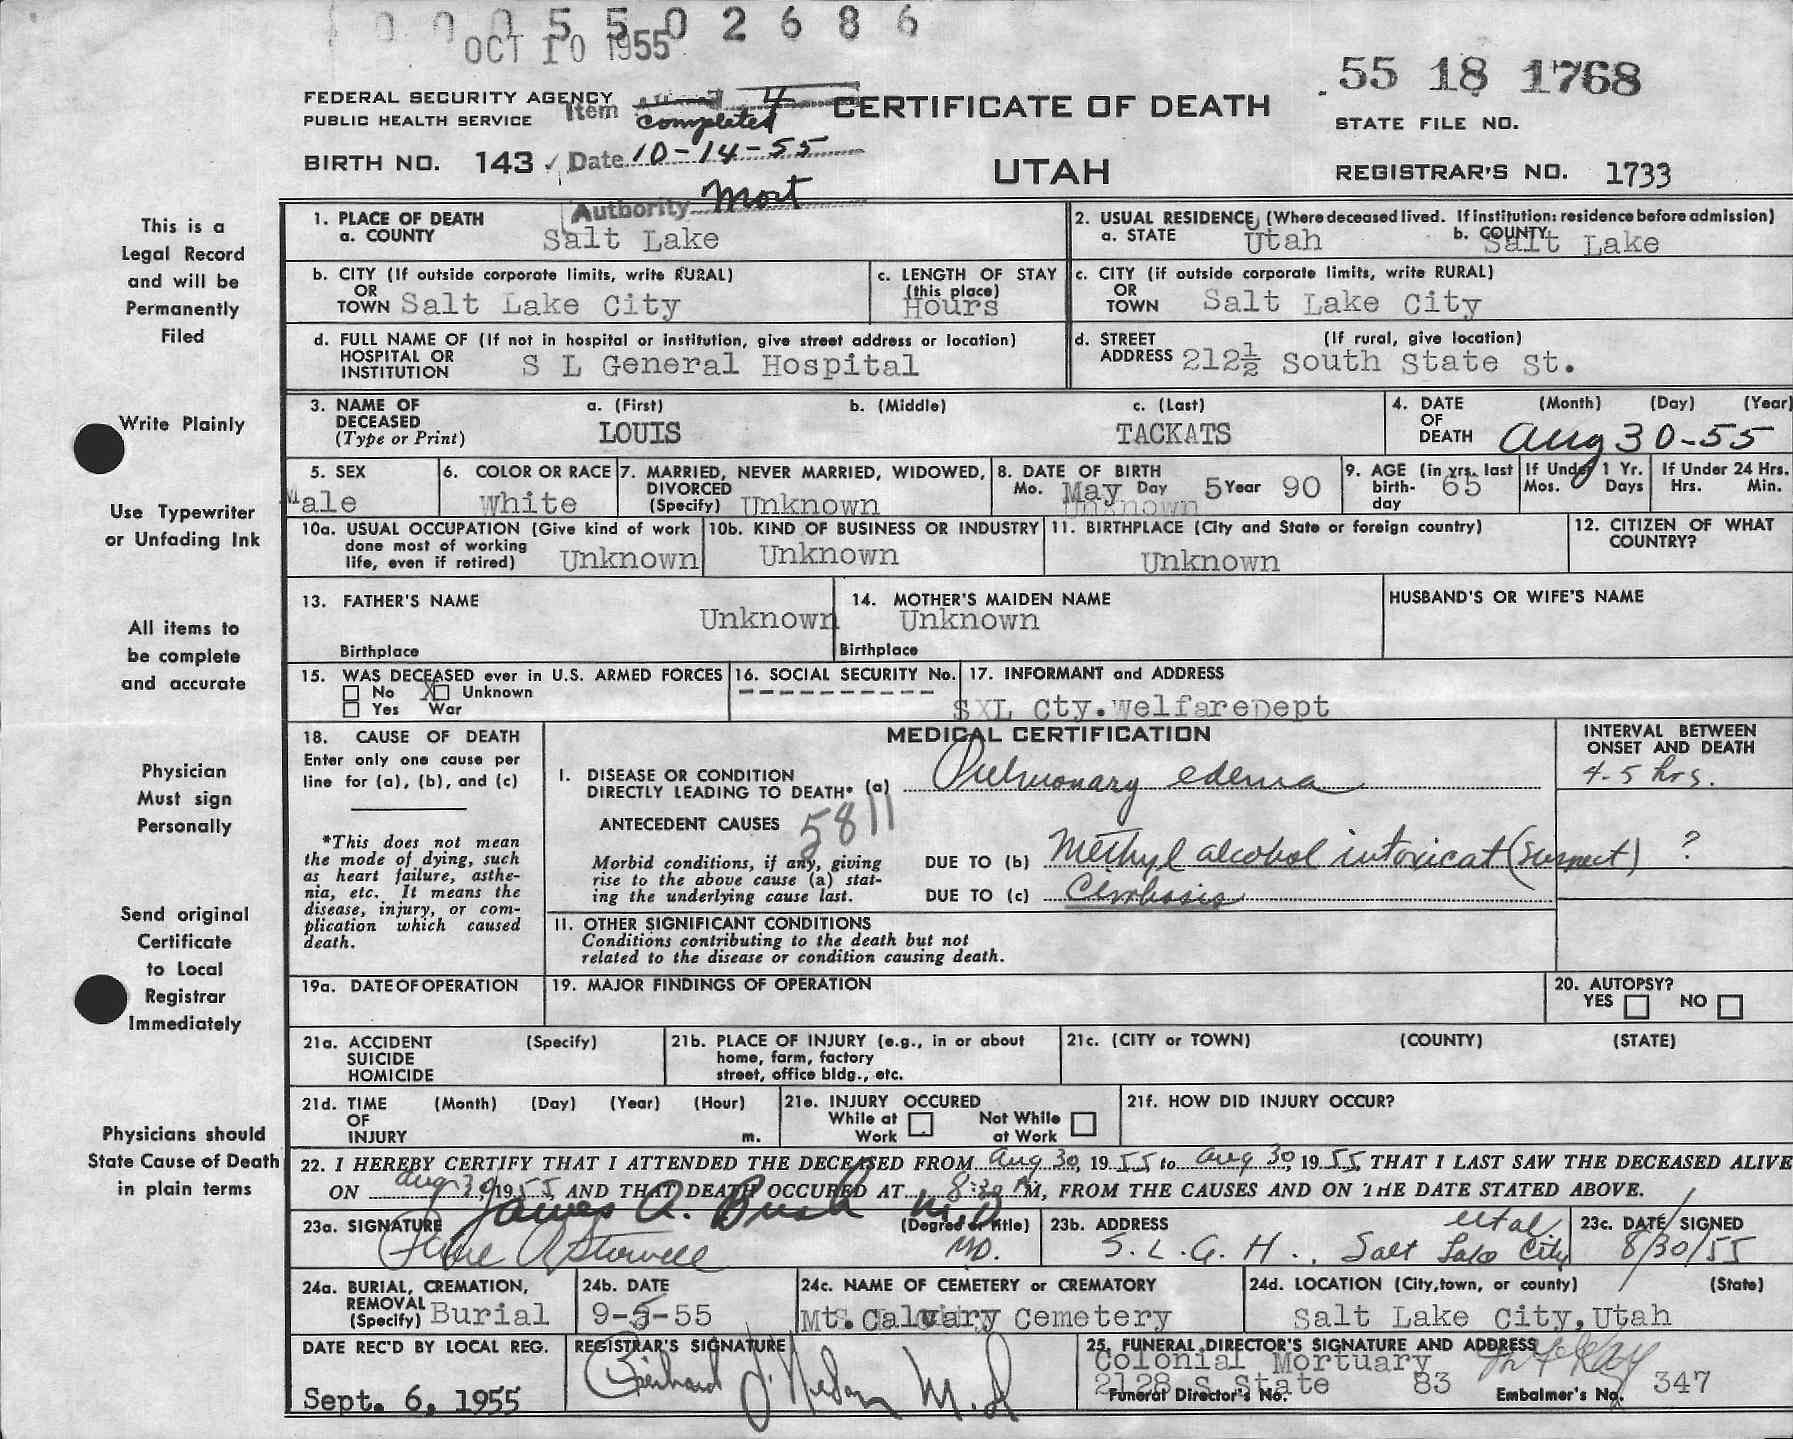 0 0 0 5 5 0 2 6 8 6
OCT 10 1955
55 18 1768
FEDERAL SECURITY AGENCY
PUBLIC HEALTH SERVICE
Item 4
completed
CERTIFICATE OF DEATH
STATE FILE NO.
BIRTH NO. 143 Date 10-14-55
UTAH
REGISTRAR'S NO. 1733
Authority Mort
This is a
Legal Record
and will be
Permanently
Filed
Write Plainly
Use Typewriter
or Unfading Ink
All items to
be complete
and accurate
Physician
Must sign
Personally
Send original
Certificate
to Local
Registrar
Immediately
Physicians should
State Cause of Death
in plain terms
1. PLACE OF DEATH
a. COUNTY Salt Lake
2. USUAL RESIDENCE (Where deceased lived. If institution: residence before admission)
a. STATE Utah b. COUNTY Salt Lake
b. CITY (If outside corporate limits, write RURAL)
OR
TOWN Salt Lake City
c. LENGTH OF STAY
(this place)
Hours
c. CITY (if outside corporate limits, write RURAL)
OR
TOWN Salt Lake City
d. FULL NAME OF (If not in hospital or institution, give street address or location)
HOSPITAL OR
INSTITUTION S L General Hospital
d. STREET (If rural, give location)
ADDRESS 212½ South State St.
3. NAME OF
DECEASED
(Type or Print)
a. (First)
LOUIS
b. (Middle)
c. (Last)
TACKATS
4. DATE (Month) (Day) (Year)
OF
DEATH Aug 30-55
5. SEX
Male
6. COLOR OR RACE
White
7. MARRIED, NEVER MARRIED, WIDOWED,
DIVORCED
(Specify) Unknown
8. DATE OF BIRTH
Mo. May Day 5 Year 90
Unknown
9. AGE (in yrs. last
birth-
day 65
If Under 1 Yr.
Mos. Days
If Under 24 Hrs.
Hrs. Min.
10a. USUAL OCCUPATION (Give kind of work
done most of working
life, even if retired) Unknown
10b. KIND OF BUSINESS OR INDUSTRY
Unknown
11. BIRTHPLACE (City and State or foreign country)
Unknown
12. CITIZEN OF WHAT
COUNTRY?
13. FATHER'S NAME
Unknown
Birthplace
14. MOTHER'S MAIDEN NAME
Unknown
Birthplace
HUSBAND'S OR WIFE'S NAME
15. WAS DECEASED ever in U.S. ARMED FORCES
No X Unknown
Yes War
16. SOCIAL SECURITY No.
----------
17. INFORMANT and ADDRESS
SXL Cty.WelfareDept
18. CAUSE OF DEATH
Enter only one cause per
line for (a), (b), and (c)
*This does not mean
the mode of dying, such
as heart failure, asthe-
nia, etc. It means the
disease, injury, or com-
plication which caused
death.
MEDICAL CERTIFICATION
INTERVAL BETWEEN
ONSET AND DEATH
I. DISEASE OR CONDITION
DIRECTLY LEADING TO DEATH* (a) Pulmonary edema 4-5 hrs.
ANTECEDENT CAUSES 5811
Morbid conditions, if any, giving
rise to the above cause (a) stat-
ing the underlying cause last.
DUE TO (b) Methyl alcohol intoxicat (suspect) ?
DUE TO (c) Cirrhosis
II. OTHER SIGNIFICANT CONDITIONS
Conditions contributing to the death but not
related to the disease or condition causing death.
19a. DATE OF OPERATION
19. MAJOR FINDINGS OF OPERATION
20. AUTOPSY?
YES NO
21a. ACCIDENT (Specify)
SUICIDE
HOMICIDE
21b. PLACE OF INJURY (e.g., in or about
home, farm, factory
street, office bldg., etc.
21c. (CITY or TOWN) (COUNTY) (STATE)
21d. TIME (Month) (Day) (Year) (Hour)
OF
INJURY m.
21e. INJURY OCCURED
While at Work
Not While at Work
21f. HOW DID INJURY OCCUR?
22. I HEREBY CERTIFY THAT I ATTENDED THE DECEASED FROM Aug 30, 1955 to Aug 30, 1955, THAT I LAST SAW THE DECEASED ALIVE
ON Aug 30, 1955, AND THAT DEATH OCCURED AT 8:30 M, FROM THE CAUSES AND ON THE DATE STATED ABOVE.
James A. Bush M.D
23a. SIGNATURE (Degree or title)
MD.
23b. ADDRESS
S. L. G. H., Salt Lake City Utah
23c. DATE SIGNED
8/30/55
24a. BURIAL, CREMATION,
REMOVAL
(Specify) Burial
24b. DATE
9-5-55
24c. NAME OF CEMETERY or CREMATORY
Mt. Calvary Cemetery
24d. LOCATION (City,town, or county) (State)
Salt Lake City,Utah
DATE REC'D BY LOCAL REG.
Sept. 6, 1955
REGISTRAR'S SIGNATURE
M.D
25. FUNERAL DIRECTOR'S SIGNATURE AND ADDRESS
Colonial Mortuary
2128 S State 83 347
Funeral Director's No. Embalmer's No.